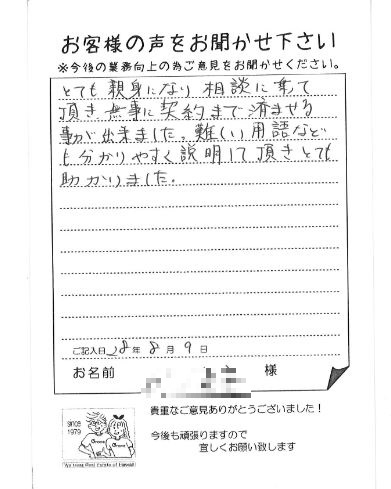 お客様の声をお聞かせ下さい
※今後の業務向上の為ご意見をお聞かせください。
とても親身になり相談に乗て
頂き無事に契約まで済ませる
事が出来ました。難しい用語など
も分かりやすく説明して頂きとても
助かりました。
ご記入日 28年 8月 9日
お名前 様
since
1979
貴重なご意見ありがとうございました！
今後も頑張りますので
宜しくお願い致します